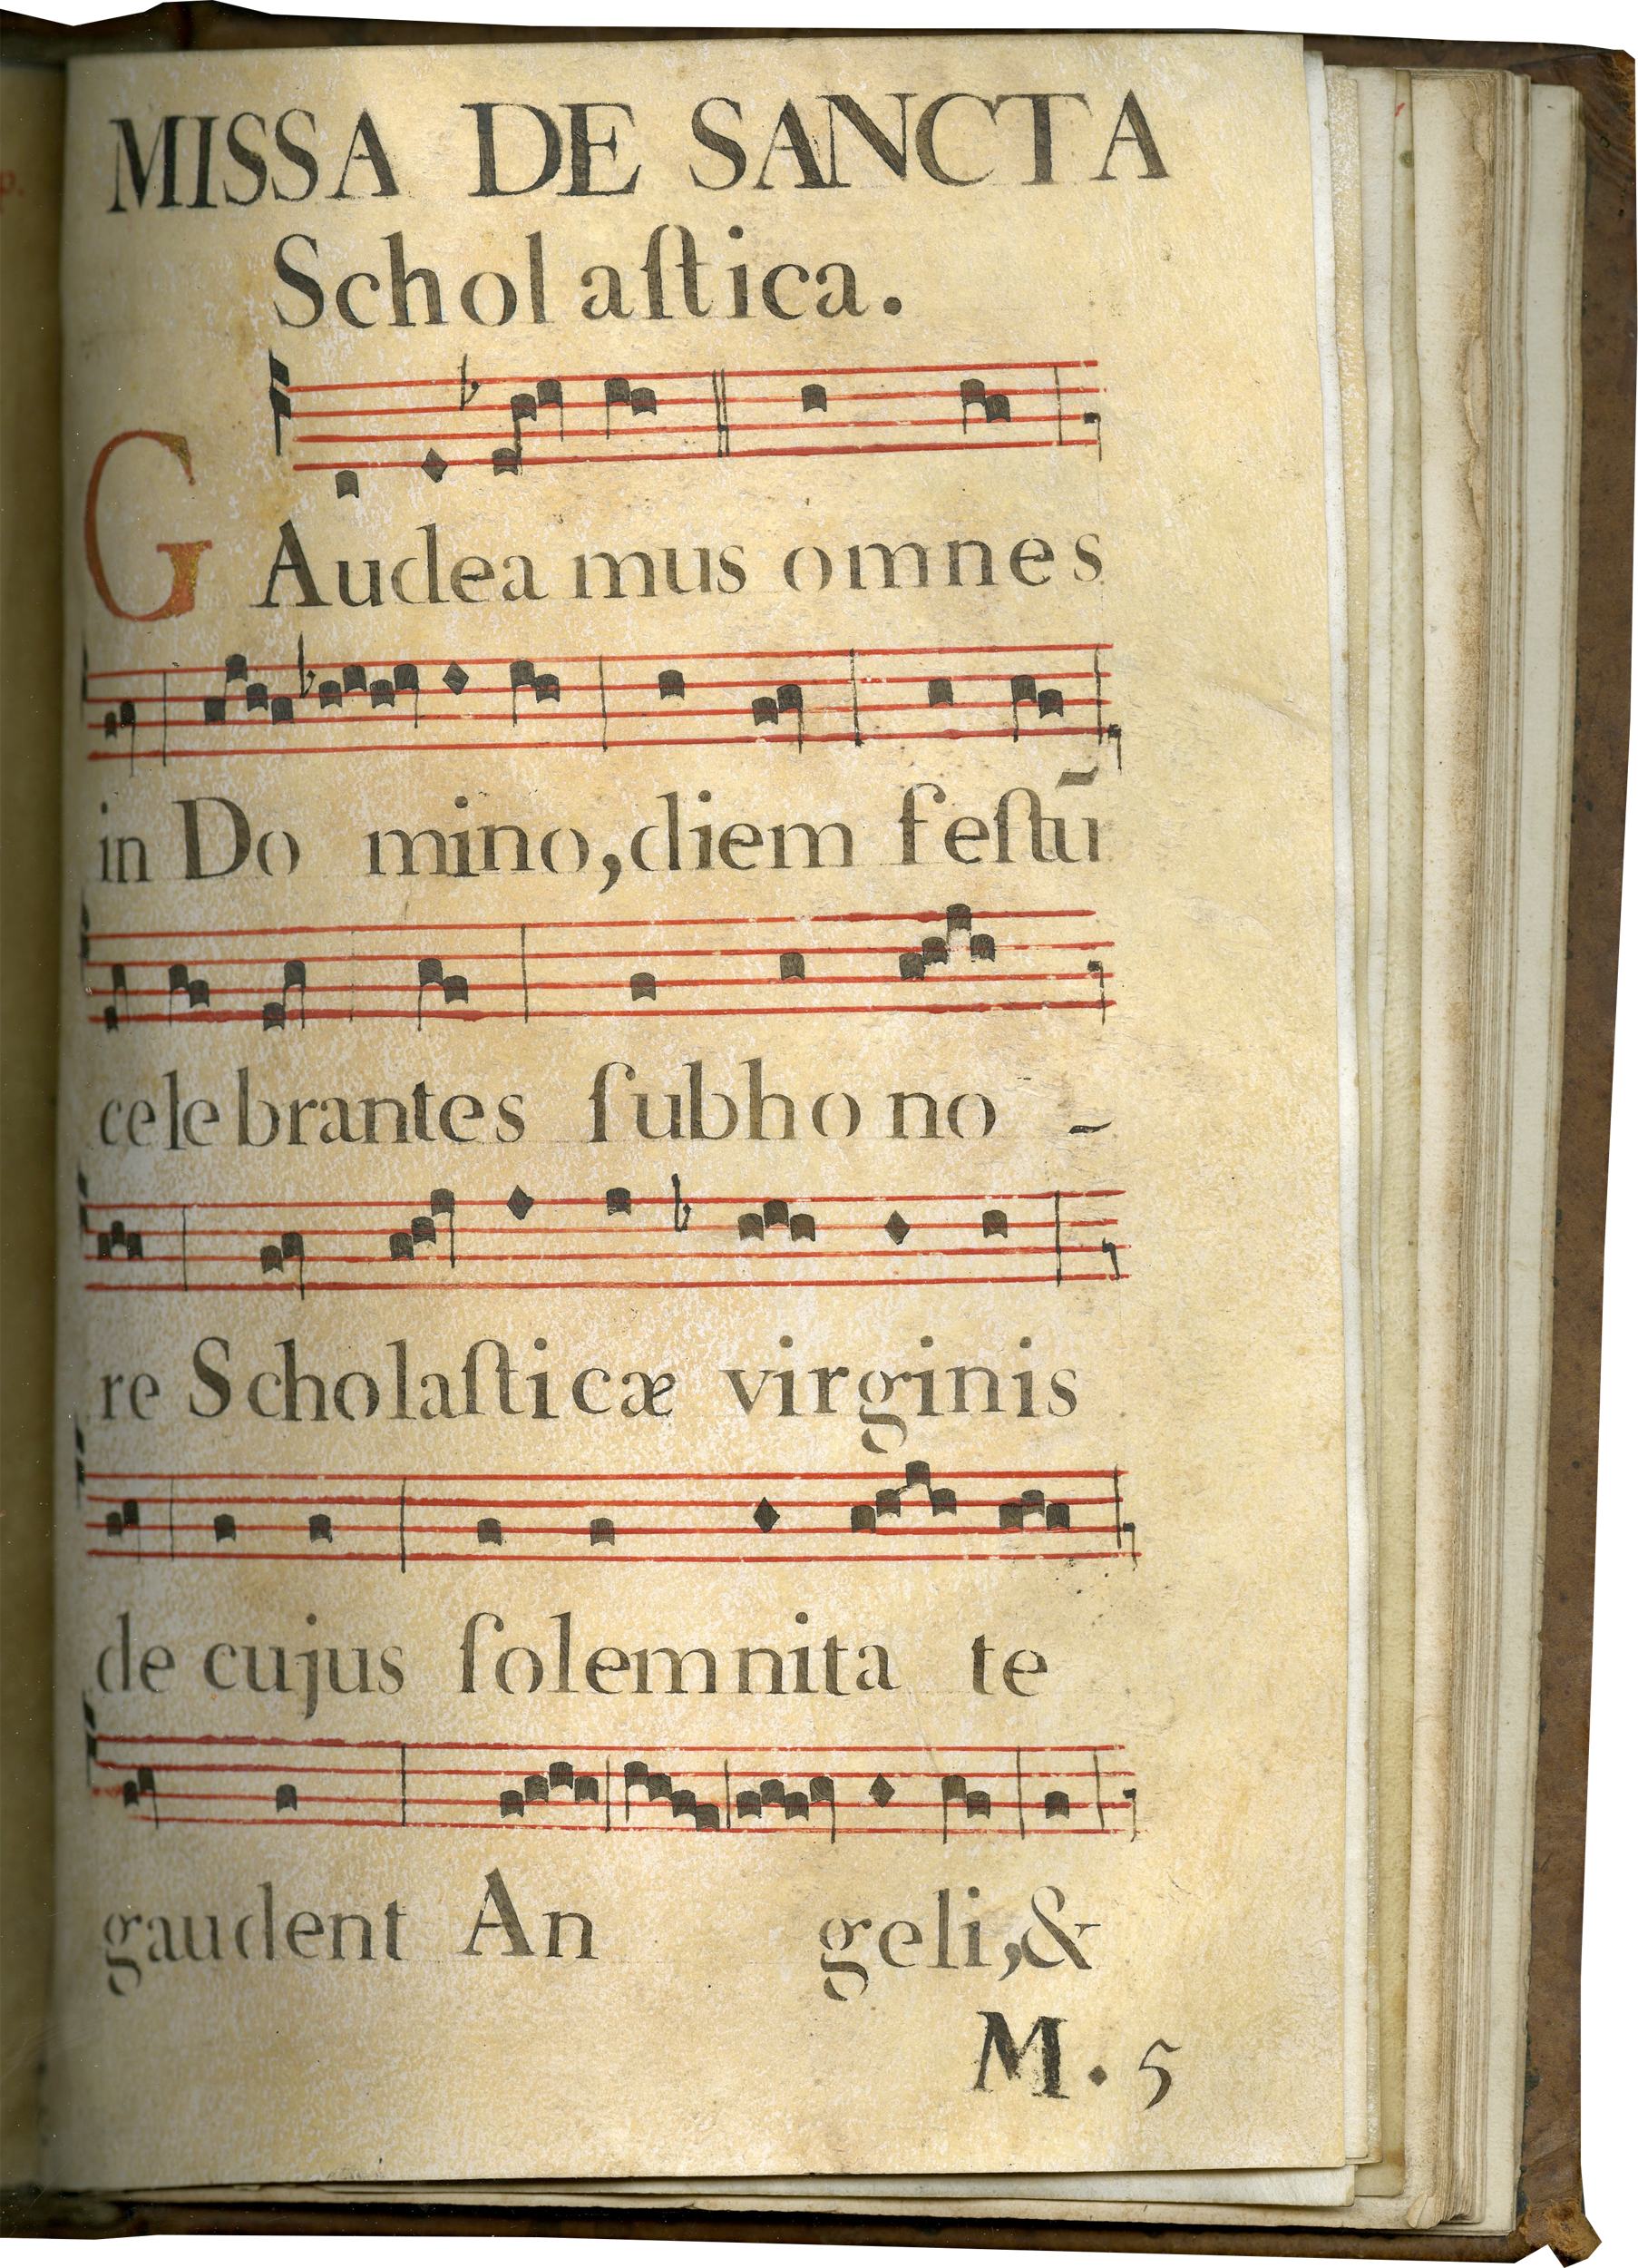 MISSA DE SANCTA
Scholaſtica.
GAudeamus omnes
in Domino, diem feſtū
celebrantes ſub hono-
re Scholaſticæ virginis
de cujus ſolemnitate
gaudent Angeli, &
M. 5